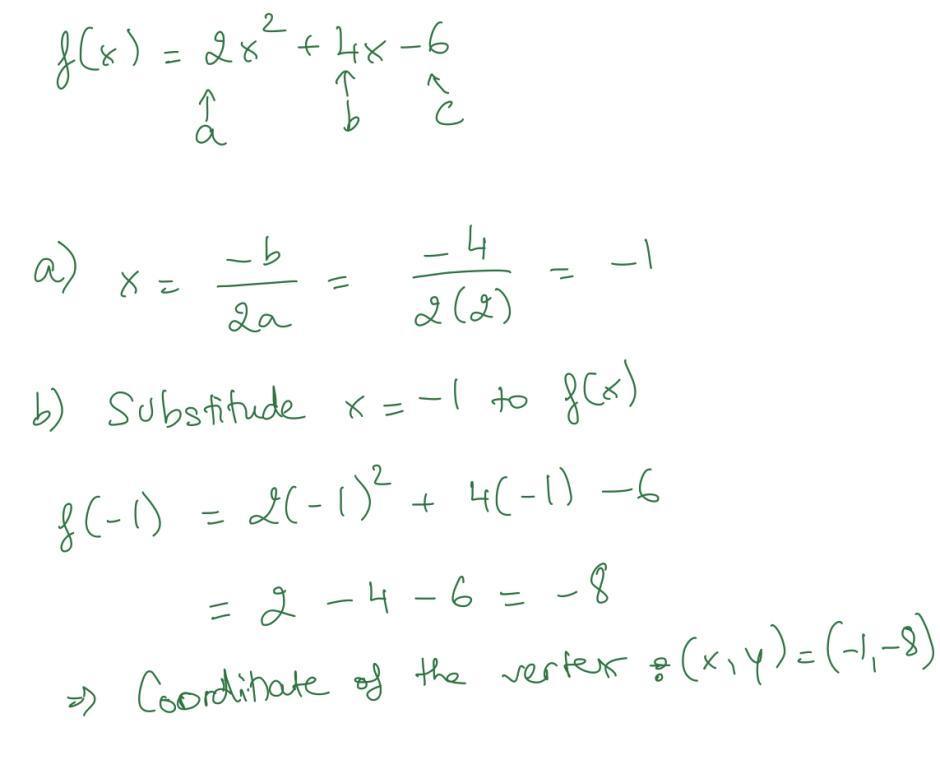 f(x) = 2x² + 4x - 6
↑ a ↑ b ↖ c
a) x = -b/2a = -4/2(2) = -1
b) Substitude x = -1 to f(x)
f(-1) = 2(-1)² + 4(-1) - 6
= 2 - 4 - 6 = -8
⇒ Coordinate of the vertex : (x, y) = (-1, -8)